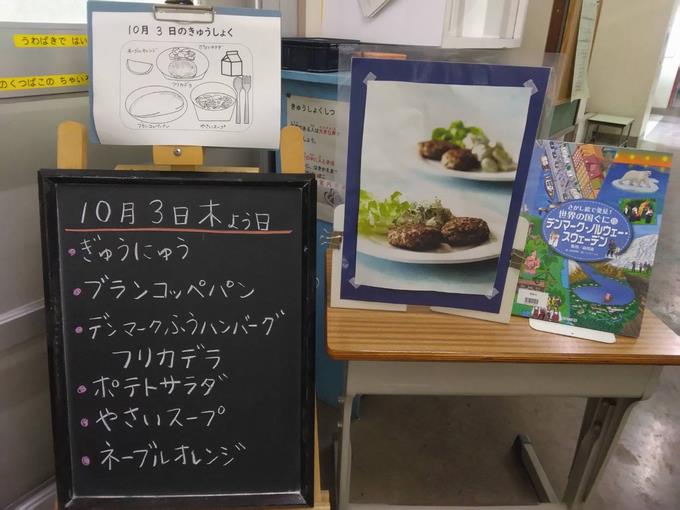 うわばきで はい
のくつばこの ちゃいろ
10月 3日のきゅうしょく
ネーブルオレンジ
ポテトサラダ
フリカデラ
ブランコッペパン
やさいスープ
きゅうしょくしつ
10月3日木よう日
・ぎゅうにゅう
・ブランコッペパン
・デンマークふうハンバーグ
フリカデラ
・ポテトサラダ
・やさいスープ
・ネーブルオレンジ
さがし絵で発見!
世界の国ぐに
デンマーク・ノルウェー・
スウェーデン